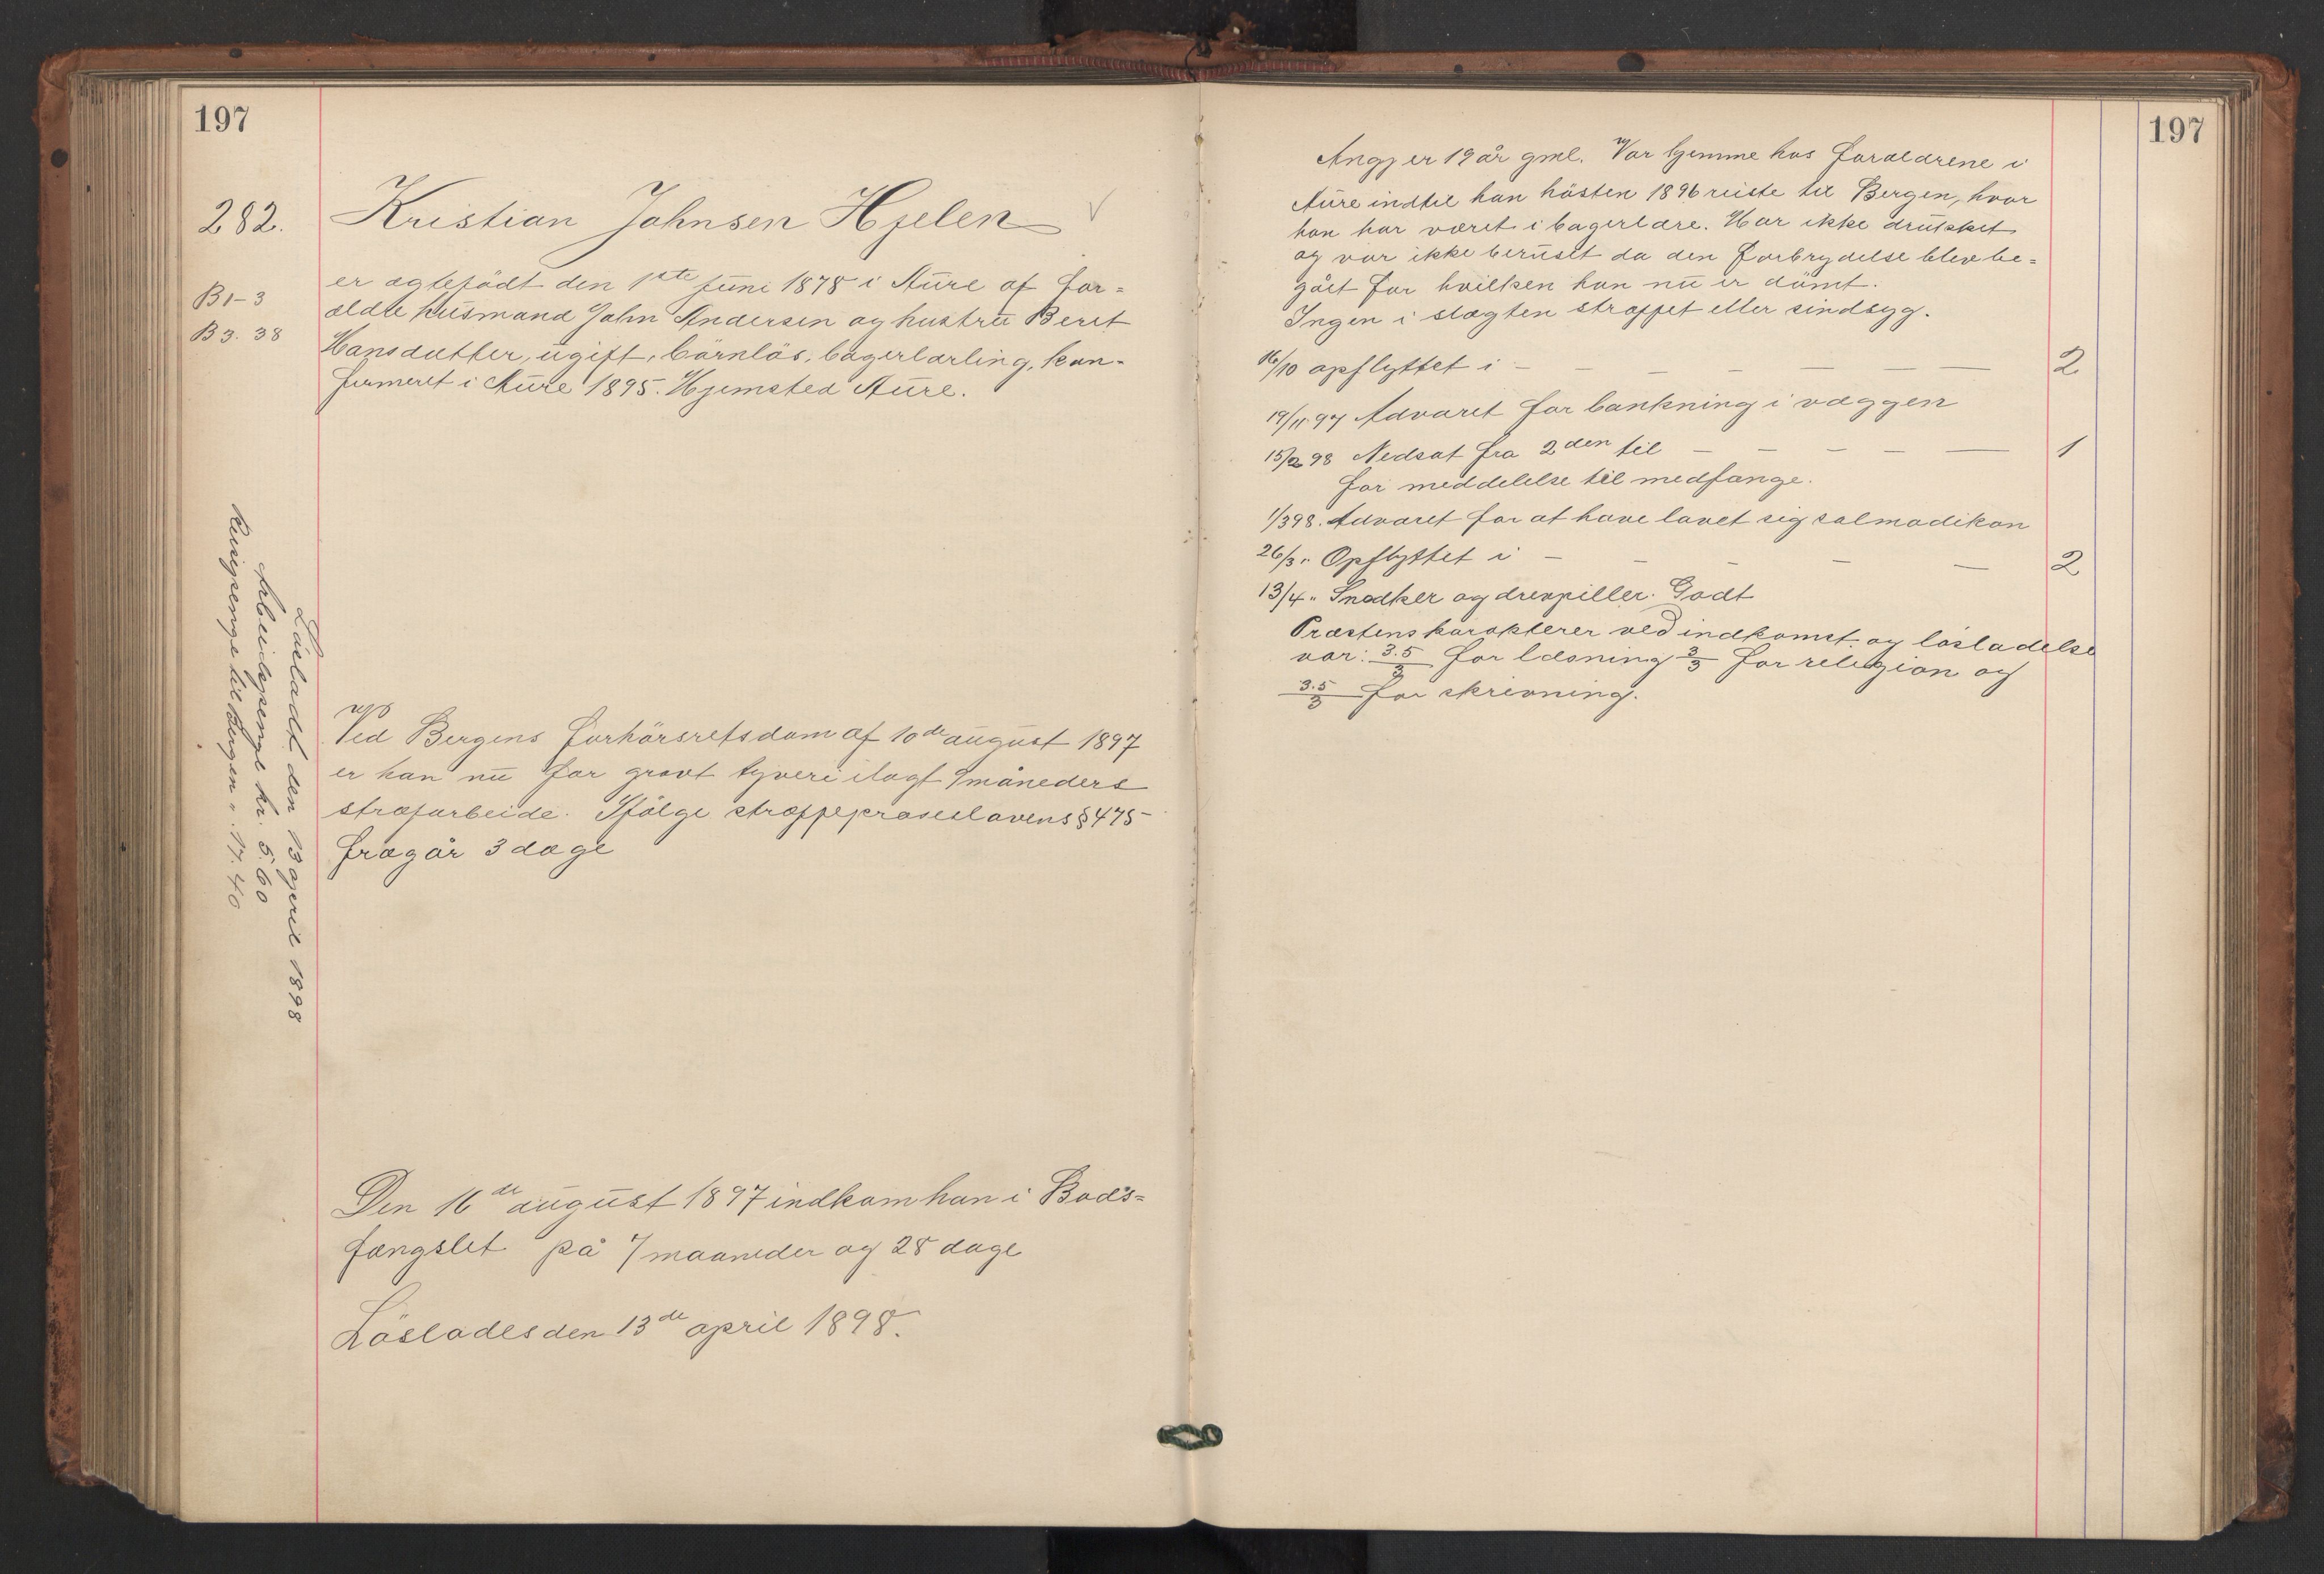 197
282.
Kristian Johnsen Hjelen
B1-3
B3. 38
er ægtefödt den 1ste juni 1878 i Aure af for=
ældre husmand John Andersen og hustru Beret
Hansdatter, ugift, barnlös, bagerlærling, kon-
firmeret i Aure 1895. Hjemsted Aure.
Ved Bergens forhörsretsdom af 10de august 1897
er han nu for grovt tyveri ilagt 9 måneders
strafarbeide. Ifölge straffeproceslovens § 475
fragår 3 dage
Den 16de august 1897 indkom han i Bods=
fængslet på 7 maaneder og 28 dage
Löslades den 13de april 1898.
Lösladt den 13 april 1898
Arbeidspenge kr. 5.60
Reisepenge til Bergen " 17.40
197
Angj er 19 år gml. Var hjemme hos forældrene i
Aure indtil han hösten 1896 reiste til Bergen, hvor
han har været i bagerlære. Har ikke drukket
og var ikke beruset da den forbrydelse blev be=
gået for hvilken han nu er dömt.
Ingen i slægten straffet eller sindsyg.
16/10 opflyttet i — — — — — — 2
19/11 97 Advaret for bankning i væggen
15/2 98 Nedsat fra 2den til — — — — — 1
for meddelelse til medfange.
1/3 98. Advaret for at have lavet sig salmodikon
26/3 " Opflyttet i — — — — — 2
13/4 " Snedker og drevpiller. Godt
Præstens karakterer ved indkomst og lösladelse
var: 3.5/3 for læsning 3/3 for religion og
3.5/3 for skrivning.